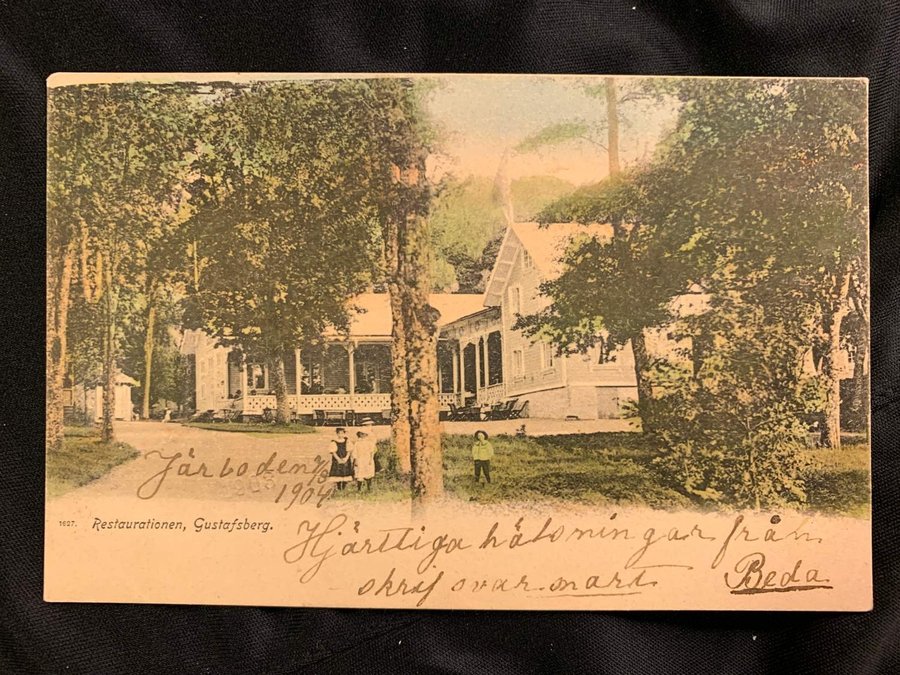 Järboden 7/8
1904
1627. Restaurationen, Gustafsberg.
Hjärtliga hälsningar från
skrif svar snart Beda